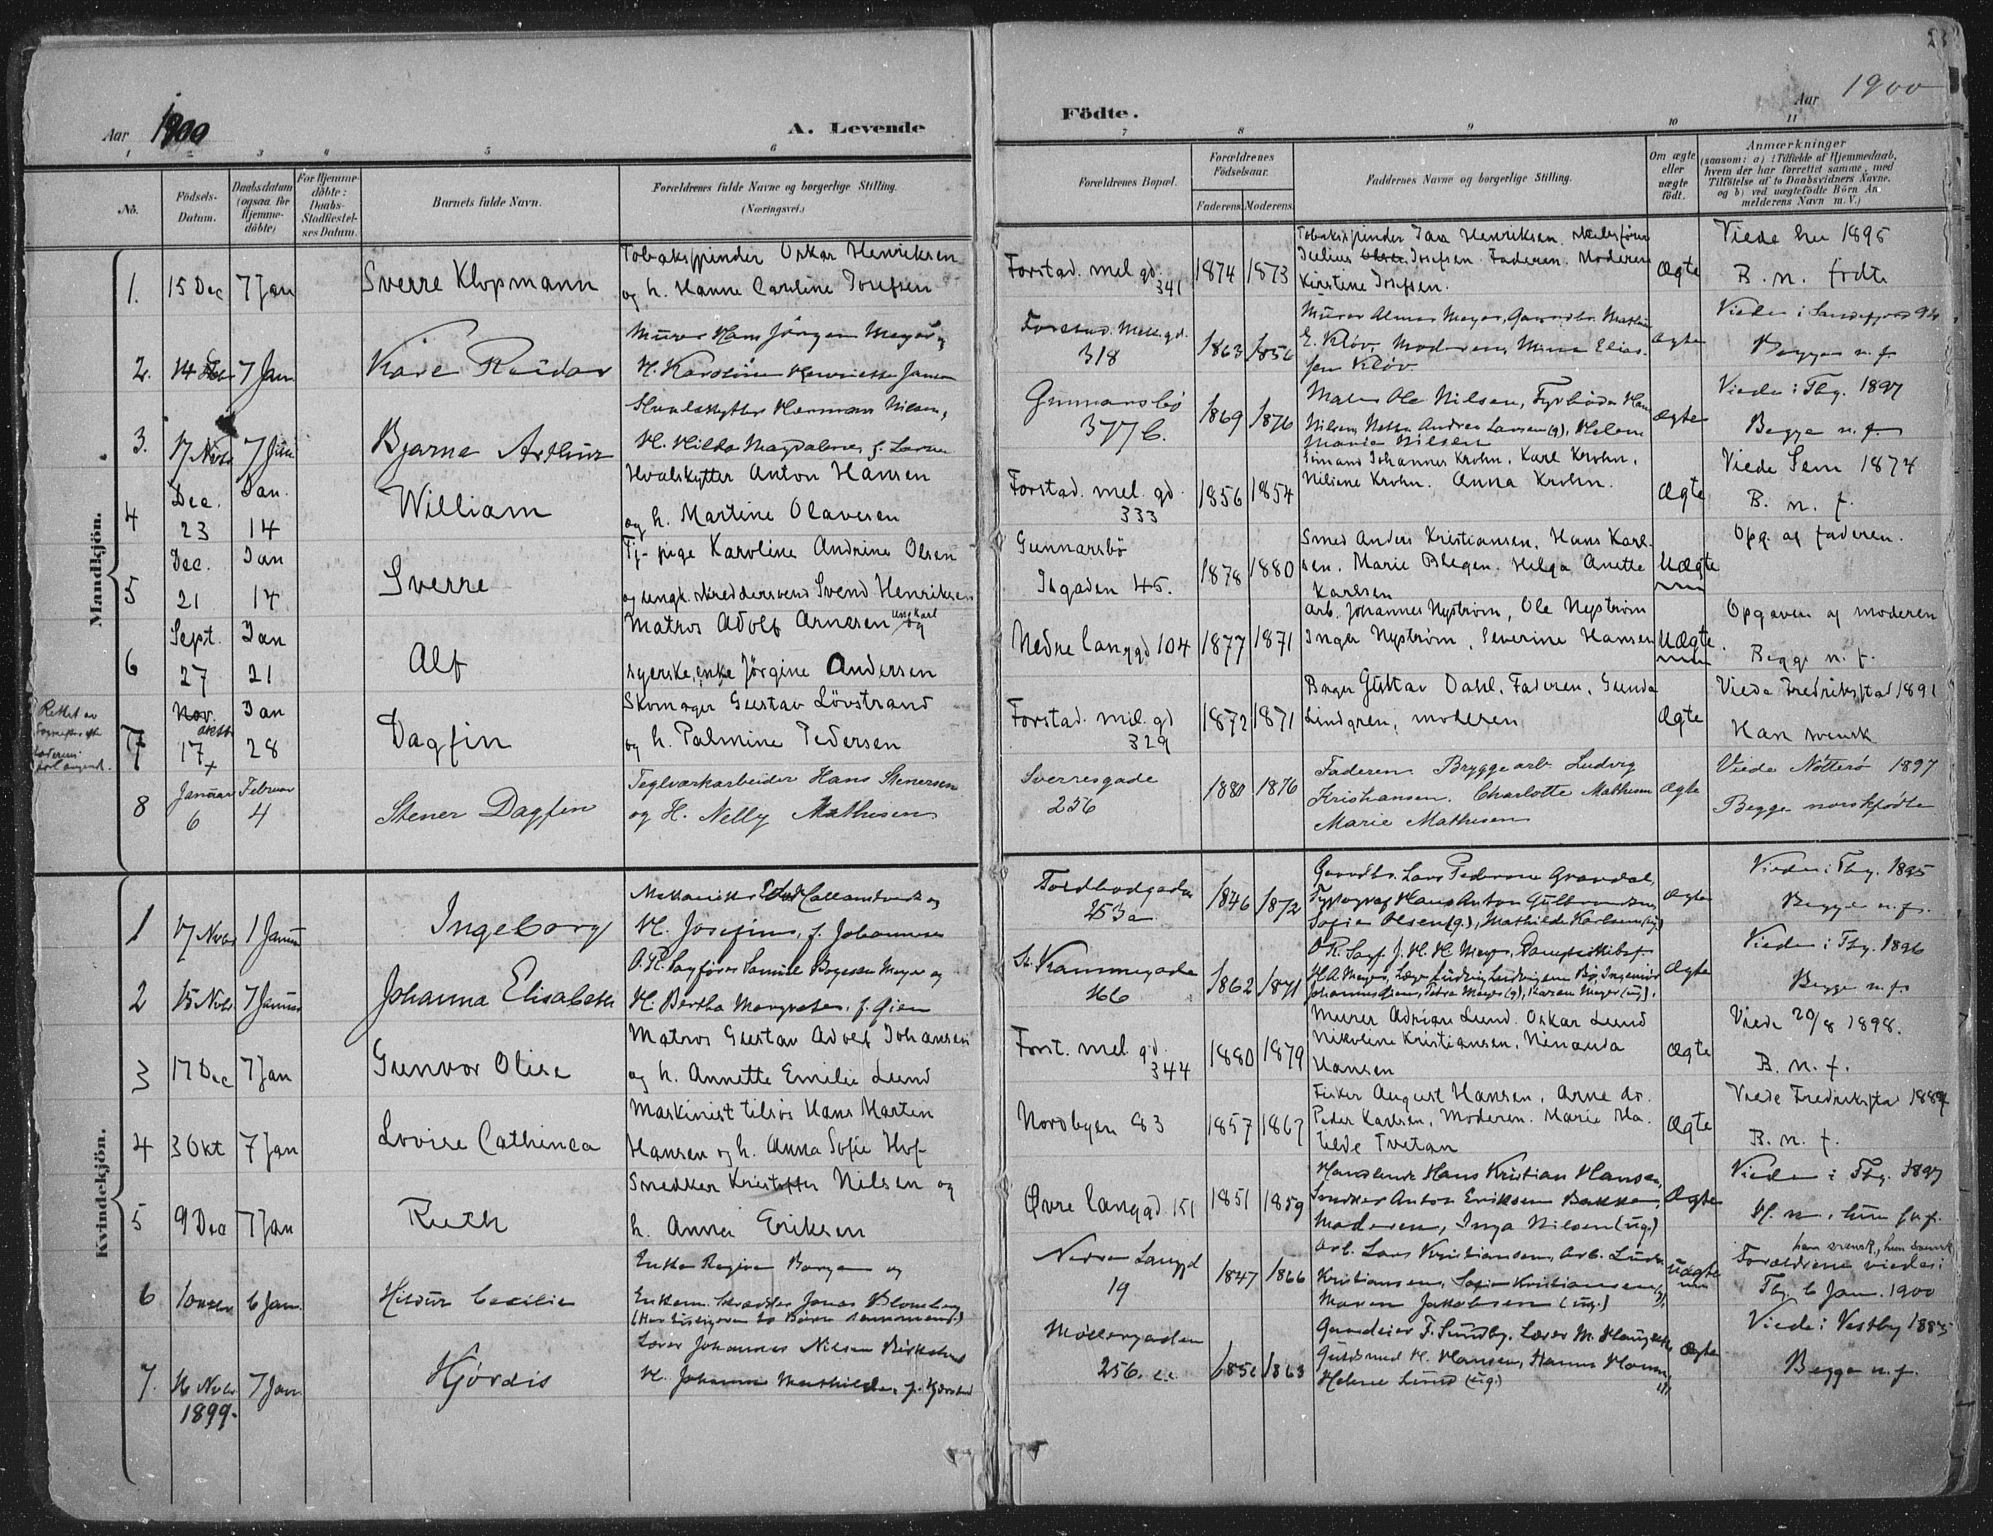 23
Aar 1900 A. Levende
Födte. Aar 1900
1 2 3 4 5 6
7 8 9 10 11
No. Födsels-Datum. Daabsdatum (ogsaa for Hjemme-döbte) For Hjemme-döbte: Daabs-Stadfæstel-ses Datum. Barnets fulde Navn. Forældrenes fulde Navne og borgerlige Stilling. (Næringsvei.)
Forældrenes Bopæl. Forældrenes Födselsaar. Faderens. Moderens. Faddernes Navne og borgerlige Stilling. Om ægte eller uægte födt. Anmærkninger (saasom: a) i Tilfælde af Hjemmedaab, hvem der har forrettet samme, med Tilföielse af to Daabsvidners Navne, og b) ved uægtefödte Börn An-melderens Navn m. V.)
Mandkjön.
1. 15 Dec 7 Jan Sverre Klopmann
Tobakspinder Oskar Henriksen
og h. Hanne Caroline Josefsen
Forstad. mel. gd. 341 1874 1873
Tobakspinder Henriksen.
Julius Josefsen. Faderen. Moderen
Kirstine Josefsen.
Ægte
Viede her 1895
B. n. fødte
2. 14 7 Jan. Kåre Reidar
Murer Hans Jörgen Meyer og
H. Karoline Henriette Jansen
Forstad. Mell. gd. 318 1863 1856
E. Kløv. Moderen, Elias-
sen Kløv
Ægte
Viede i Sandefjord 92
Begge n. f.
3. 17 Nvbr 7 Jan Bjarne Arthur
Hvalskytter Herman Nilsen,
H. Hilda Magdalene f. Larsen
Gunnarsbö 377 b. 1869 1876
Ole Nilsen, Fyrbøder
Nilsen, Andrea Larsen (g), Helene
Marie Nilsen
Ægte
Viede i Tbg. 1897
Begge n. f.
4 Dec. 23 Jan. 14 William
Hvalskytter Anton Hansen
og h. Martine Olavesen
Forstad. mel. gd. 333 1856 1854
Simand Johannes Krohn. Karl Krohn.
Niliane Krohn. Anna Krohn.
Ægte
Viede Sem 1874
B. n. f.
5 Dec. 21 Jan 14 Sverre
Tj- pige Karoline Andrine Olsen
og ungk. skreddersvend Svend Henriksen
Gunnarsbö
Isgaden 45. 1878 1880
Smed Anders Kristiansen. Hans Karl-
sen. Marie Blegen. Helga Anette
Karlsen
Uægte
Opg. af faderen.
6 Sept. 27 Jan 21 Alf
Matros Adolf Arnesen ungkarl og
syerske, enke Jörgine Andersen
Nedre langgd 104 1877 1871
Arb. Johannes Nyström, Ole Nyström
Inger Nyström, Severine Hansen
Uægte.
Opgaven af moderen
Begge n. f.
7 Nov. 17 Jan 28 Dagfin
Skomager Gustav Lövstrand
og h. Palmine Pedersen
Forstad. mel. gd 329 1872 1871
Bager Gustav Dahl. Faderen. Gunda
Lindgren, moderen
Ægte
Viede Fredrikstad 1891
Han svensk
8 Januar 6 Februar 4 Stener Dagfin
Teglværkarbeider Hans Stenersen
og H. Nelly Mathisen
Sverresgade 256 1880 1876
Faderen Bryggearb. Ludvig
Kristiansen. Charlotte Mathisen
Marie Mathisen
Ægte
Viede Nötterö 1897
Begge norskfødte
Kvindekjön.
1 17 Nvbr 1 Januar Ingeborg
H. Josefine, f. Johannesen
Fordbodgaden 253 a 1846 1872
Gaardbr. Lars Pedersen
Typograf Hans Anton Gulbrandsen
Sofie Olsen (g.), Mathilde Karlsen (ug)
Ægte
Viede i Tbg. 1895
Begge n. f.
2 15 Nvbr 7 Januar Johanna Elisabeth
O. R. Sagfører Samuel Meyer og
H. Bertha Margrethe, f. Gien
St. Kannuegade 166 1862 1871
O. R. Sagf. J. H. H. Meyer,
H. A. Meyer, Læge Ludvig Ludvigsen Ingeniør
Ægte
Viede i Tbg. 1896
Begge n. f.
3 17 Dec 7 Jan Gunvor Olise
Matros Gustav Adolf Johansen
og h. Annette Emilie Lund
Forst. mel. gd. 344 1880 1879
Murer Adrian Lund. Oskar Lund
Nikoline Kristiansen, Ninanda
Hansen
Ægte
Viede 20/8 1898.
B. n. f.
4 3 Okt 7 Jan Lovise Cathinca
Maskinist tilsös Hans Martin
Hansen og h. Anna Sofie Hof-
Nordbyen 83 1857 1867
Fisker August Hansen, Arne do.
Peder Karlsen, Moderen. Marie Ma-
tilde Tvetan
Ægte
Viede Fredrikstad 1884
B. n. f.
5 9 Dec 7 Jan Ruth
Snedker Kristoffer Nilsen og
h. Anna Eriksen
Øvre langgd. 151 1851 1859
Hans Kristian Hansen,
Snedker Anton Eriksen Bakken,
Moderen, Inga Nilsen (ug.)
Ægte
Viede i Tbg. 1897
6 6 Jan. Hildur Cecilie
Enke Regine Borgen og
Enkem. Skrædder Jonas Blomberg
Nedre Langgd 19 1847 1866
Arb. Lars Kristiansen, Arb.
Kristiansen, Sofie Kristiansen
Maren Jakobsen (ug.)
uægte
han svensk, hun svensk
Forældrene viede i
Tbg. 6 Jan. 1900
7. 16 Nvbr. 1899. 7 Jan. Hjördis
Lærer Johannes Nilsen
H. Johanne Mathilde, f.
Møllergaden 256. 1863
Gaardeier F. Sundby. Lærer M.
Guldsmed H. Hansen, Hanna
Helene Lund (ug.)
Ægte
Viede i Vestby 1885
Begge n. f.